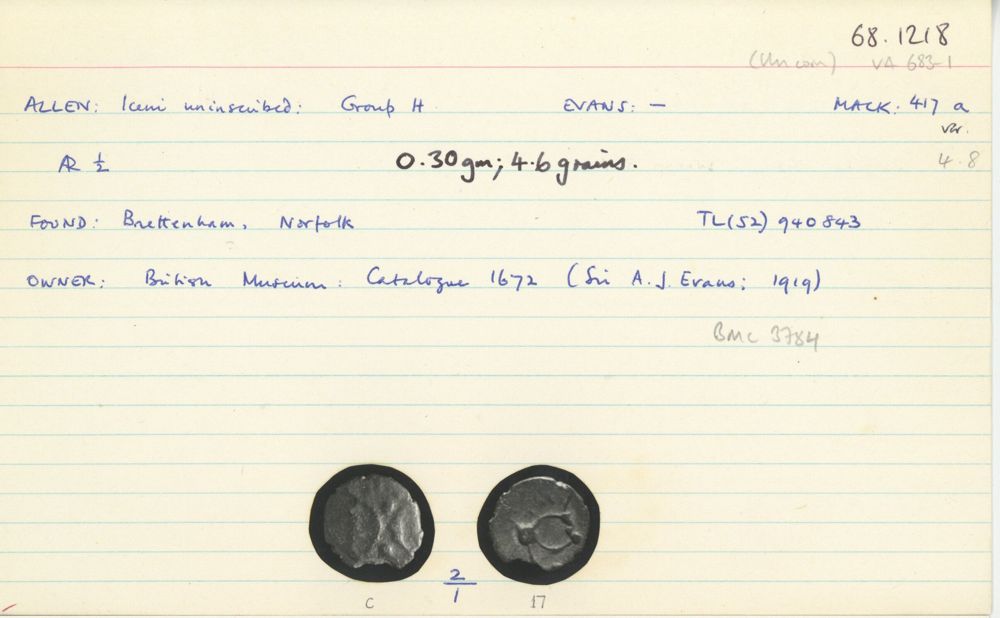 68.1218
(Uncom) VA 683-1
ALLEN: Iceni uninscribed: Group H EVANS: — MACK: 417 a
var.
AR ½ 0.30gm; 4.6 grains. 4.8
FOUND: Brettenham, Norfolk TL(52) 940843
OWNER: British Museum: Catalogue 1672 (Sir A.J. Evans; 1919)
BMC 3784
2/1
C 17